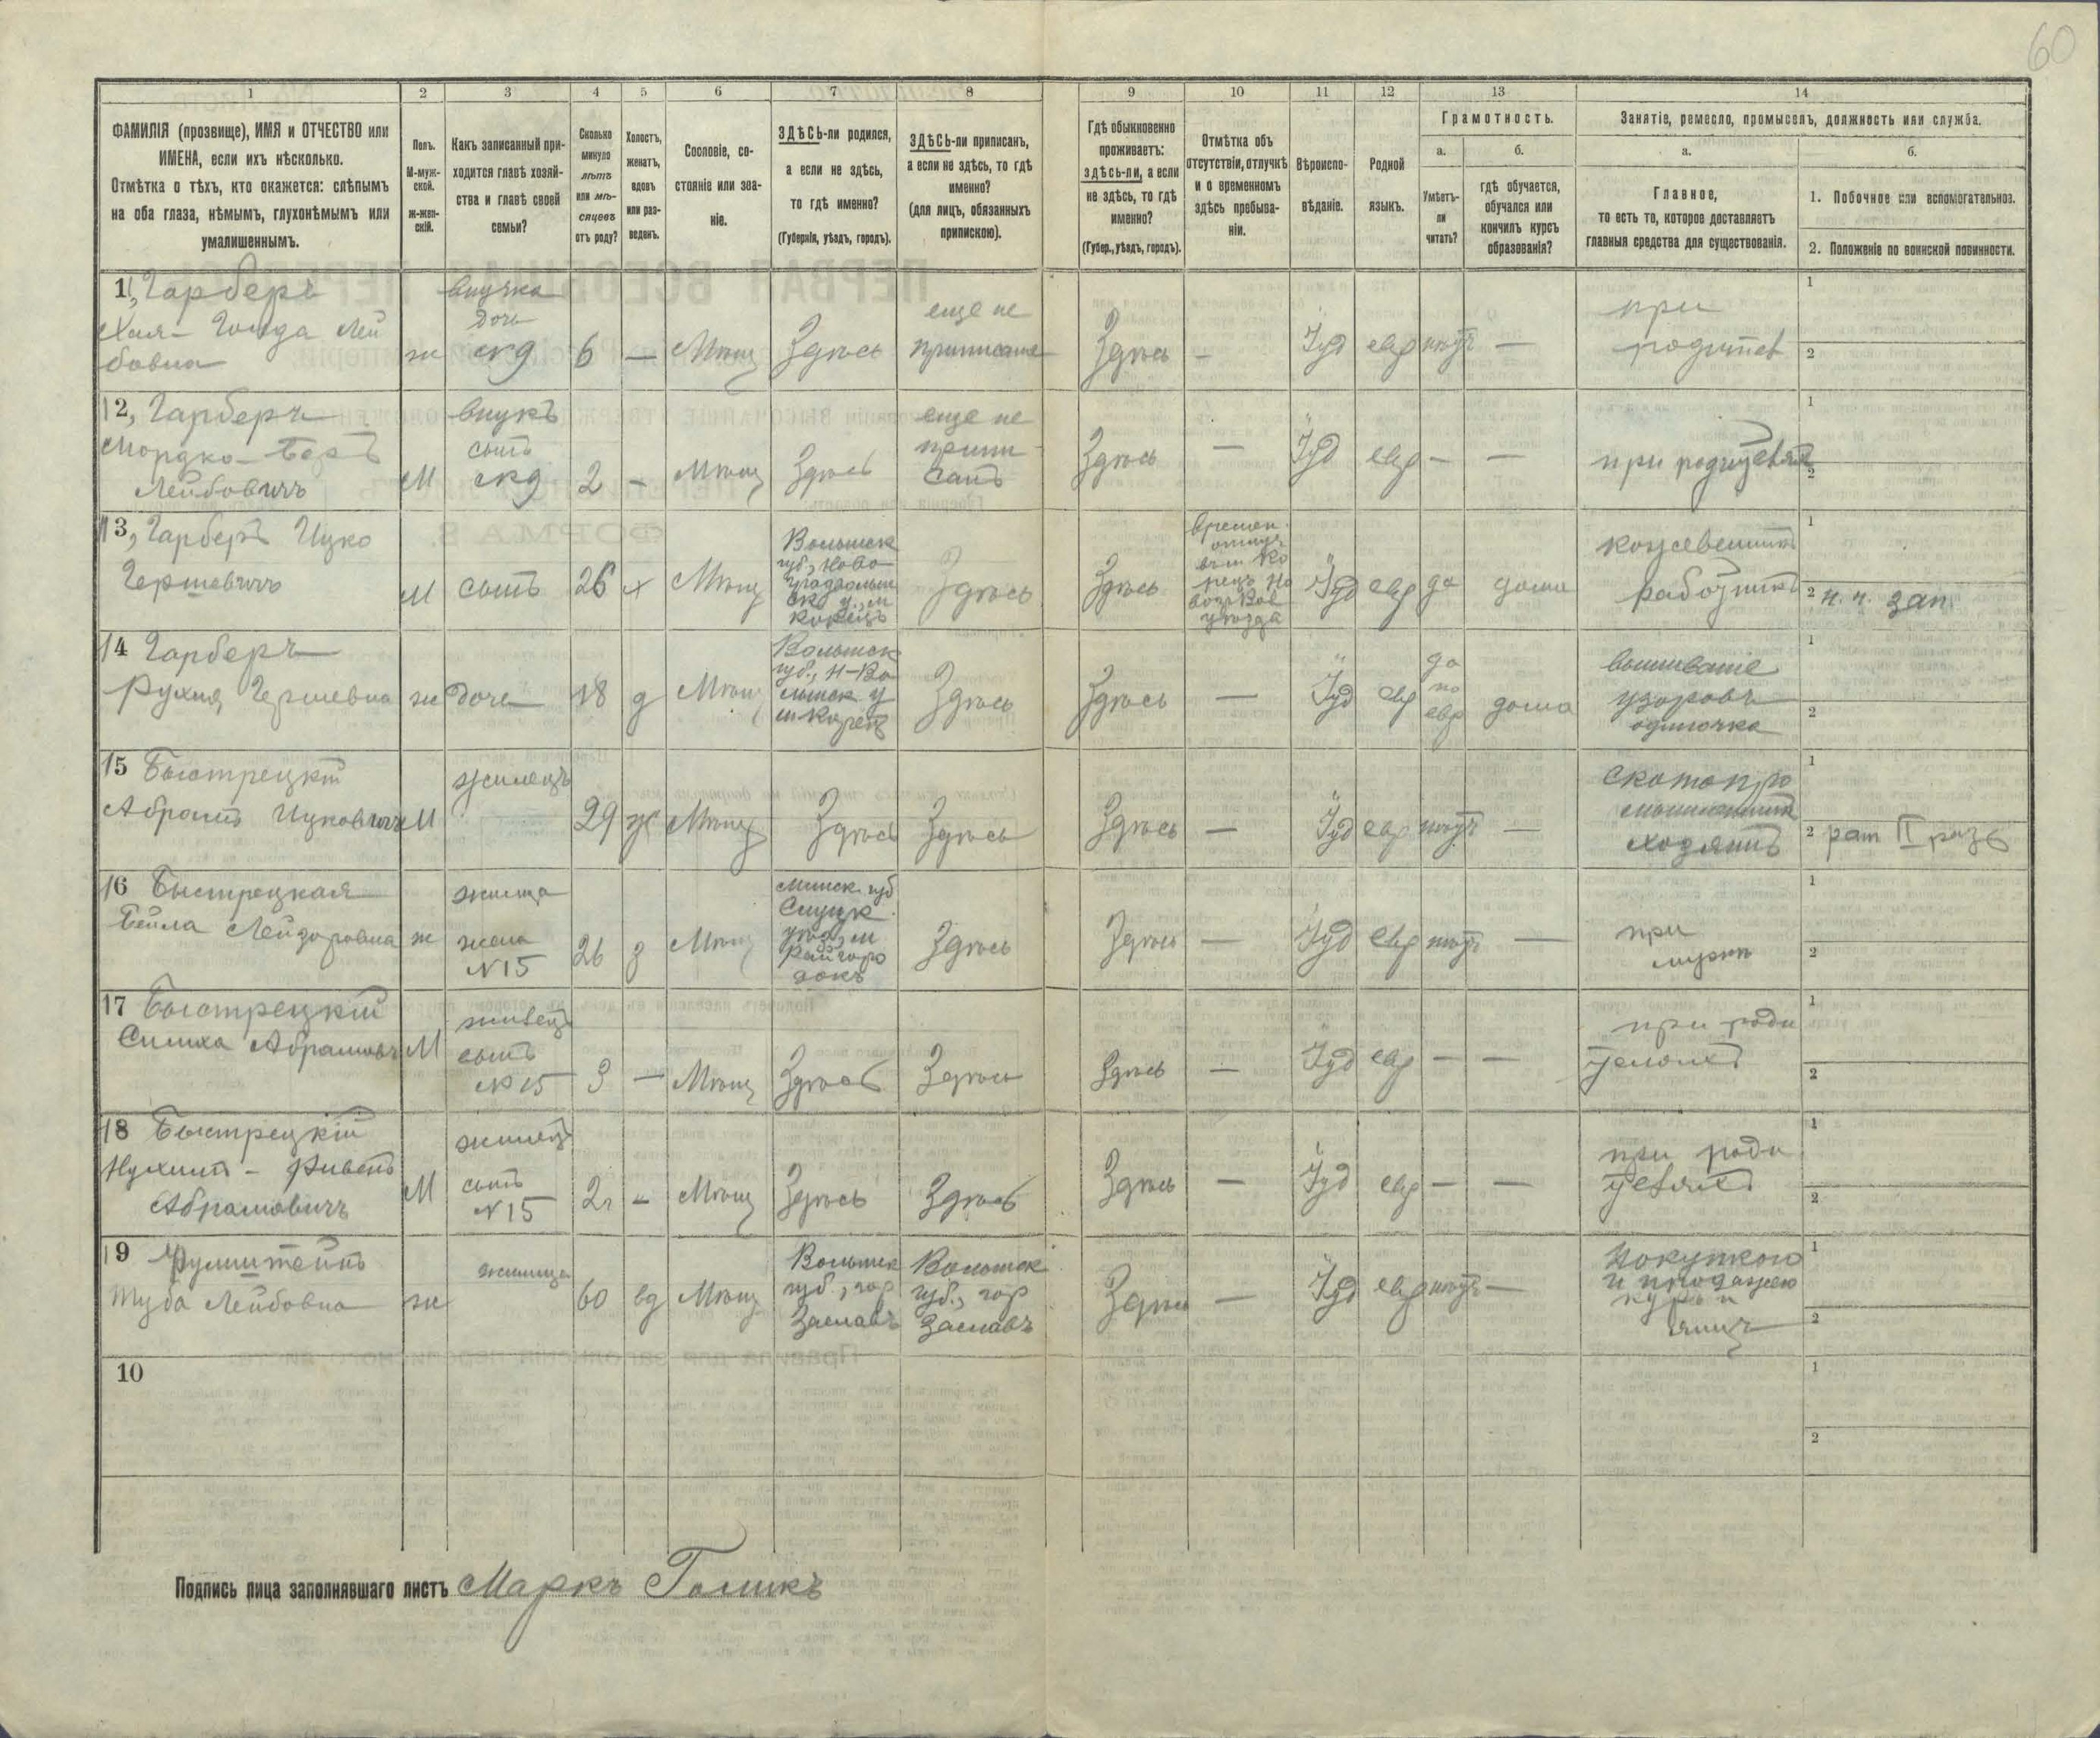 60
1 2 3 4 5 6 7 8 9 10 11 12 13 14
ФАМИЛІЯ (прозвище), ИМЯ и ОТЧЕСТВО или
ИМЕНА, если ихъ нѣсколько.
Отмѣтка о тѣхъ, кто окажется: слѣпымъ
на оба глаза, нѣмымъ, глухонѣмымъ или
умалишеннымъ.
Полъ.
М-муж-
ской.
ж-жен-
скій.
Какъ записанный при-
ходится главѣ хозяй-
ства и главѣ своей
семьи?
Сколько
минуло
лѣтъ
или мѣ-
сяцевъ
отъ роду?
Холостъ,
женатъ,
вдовъ
или раз-
веденъ.
Сословіе, со-
стояніе или зва-
ніе.
ЗДѢСЬ-ли родился,
а если не здѣсь,
то гдѣ именно?
(Губернія, уѣздъ, городъ).
ЗДѢСЬ-ли приписанъ,
а если не здѣсь, то гдѣ
именно?
(для лицъ, обязанныхъ
припискою).
Гдѣ обыкновенно
проживаетъ:
здѣсь-ли, а если
не здѣсь, то гдѣ
именно?
(Губер., уѣздъ, городъ).
Отмѣтка объ
отсутствіи, отлучкѣ
и о временномъ
здѣсь пребыва-
ніи.
Вѣроиспо-
вѣданіе.
Родной
языкъ.
Грамотность.
а.
Умѣетъ-
ли
читать?
б.
гдѣ обучается,
обучался или
кончилъ курсъ
образованія?
Занятіе, ремесло, промыселъ, должность или служба.
а.
Главное,
то есть то, которое доставляетъ
главныя средства для существованія.
б.
1. Побочное или вспомогательное.
2. Положеніе по воинской повинности.
11, Гарберъ
Хая - Голда Лей
бовна
ж
внучка
дочь
6
—
Мѣщ
Здѣсь
еще не
приписана
Здѣсь
—
Іуд
евр
нѣтъ
—
при
1
2
12, Гарберъ
Мордко - Беръ
Лейбовичъ
М
внукъ
сынъ
2
-
Мѣщ
Здѣсь
еще не
припи
санъ
Здѣсь
—
Іуд
евр
—
—
при родителяхъ
1
2
13, Гарберъ Ицко
Гершевичъ
М
сынъ
26
х
Мѣщ
Волынск
губ., Ново
градволын
ск. у., м
Корецъ
Здѣсь
Здѣсь
Іуд
евр
да
дома
кожевенникъ
работникъ
1
2 н. ч. зап.
14 Гарберъ
Рухля Гершевна
ж
дочь
18
д
Мѣщ
Волынск
губ., Н-Во
лынск. у
м Корец
Здѣсь
Здѣсь
—
Іуд
евр
да
по
евр
дома
вышиваніе
узоровъ
одиночка
1
2
15 Быстрецкій
Абрамъ Ицковичъ
М
жилецъ
29
ж
Мѣщ
Здѣсь
Здѣсь
Здѣсь
—
Іуд
евр
нѣтъ
—
скотопро
мышленникъ
хозяинъ
1
2 рат II разр
16 Быстрецкая
Бейла Лейзоровна
ж
жилица
жена
№15
26
з
Мѣщ
Минск. губ
Слуцк.
уѣзд, м
Здѣсь
Здѣсь
—
Іуд
евр
нѣтъ
—
при
мужѣ
1
2
17 Быстрецкій
Симха Абрамовъ
М
жилецъ
сынъ
№15
3
—
Мѣщ
Здѣсь
Здѣсь
Здѣсь
—
Іуд
евр
—
—
при роди
теляхъ
1
2
18 Быстрецкій
Нухимъ - Фивель
Абрамовичъ
М
жилецъ
сынъ
№15
2
-
Мѣщ
Здѣсь
Здѣсь
Здѣсь
—
Іуд
евр
—
—
при роди
теляхъ
1
2
19
Туба Лейбовна
ж
жилица
60
вд
Мѣщ
Волынск
губ., гор
Заславъ
Волынск
губ., гор
Заславъ
Здѣсь
—
Іуд
евр
нѣтъ
—
покупкою
и продажею
куръ и
яицъ
1
2
10
1
2
Подпись лица заполнявшаго листъ Маркъ Голикъ